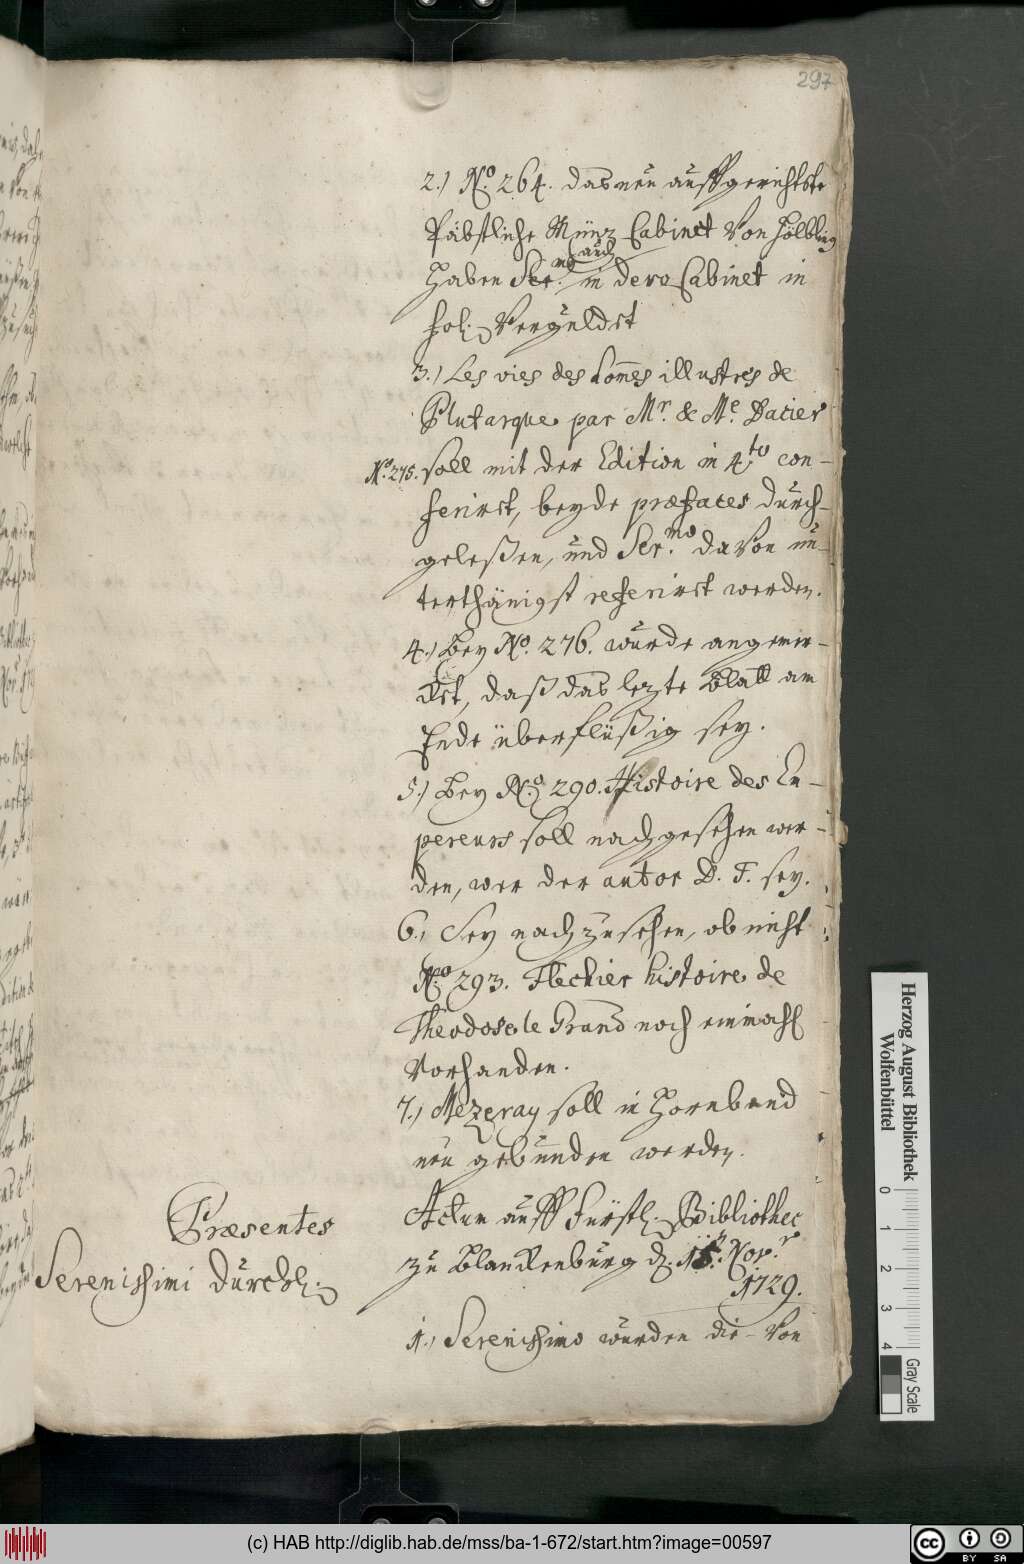 297
2.) No. 264. das neu auffgerichtste
Päbstliche Münz Cabinet von Hölbling
haben Ser.mg auch in dero Cabinet in
hol: verguldet
3.) Les vies des hom̅es illustres de
Plutarque par Mr. & Me. Dacier
No. 275. soll mit der Edition in 4.to con-
ferirt, beyde præfaces durch-
geleßen, und Ser.mo davon un-
terthänigst referirt werden.
4.) Bey No. 276. wurde angemer-
ckt, daß das lezte Blatt am
Ende überflüßig sey.
5.) Bey No. 290. Histoire des Em-
pereurs soll nachgesehen wer-
den, wer der autor D. T. sey.
6.) Sey nachzusehen, ob nicht
No. 293. Flechier histoire de
Theodose le Grand noch einmahl
vorhanden.
7.) Mezeray soll in Hornband
neu gebunden werden.
Præsentes
Serenissimi Durchl:
Actum auff Fürstl: Bibliothec
zu Blanckenburg d. 15. Nov.r
1729.
1.) Serenissimo wurden die von
Herzog August Bibliothek
Wolfenbüttel
0 1 2 3 4
Gray Scale
(c) HAB http://diglib.hab.de/mss/ba-1-672/start.htm?image=00597
cc BY SA